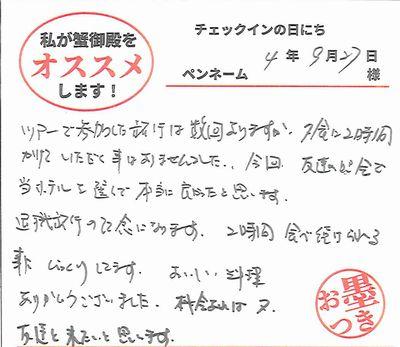 私が蟹御殿を
オススメ
します！
チェックインの日にち
4 年 9月27日
ペンネーム 様
ツアーで参加した旅行は数回ありますが、夕食に2時間
かけていただく事はありませんでした。今回、友達の
当ホテルを選んで本当に良かったと思います。
退職旅行の記念になります。2時間食べ続けられる
事にびっくりしてます。おいしい料理
ありがとうございました。機会あれば又、
友達と来たいと思います。
お墨つき